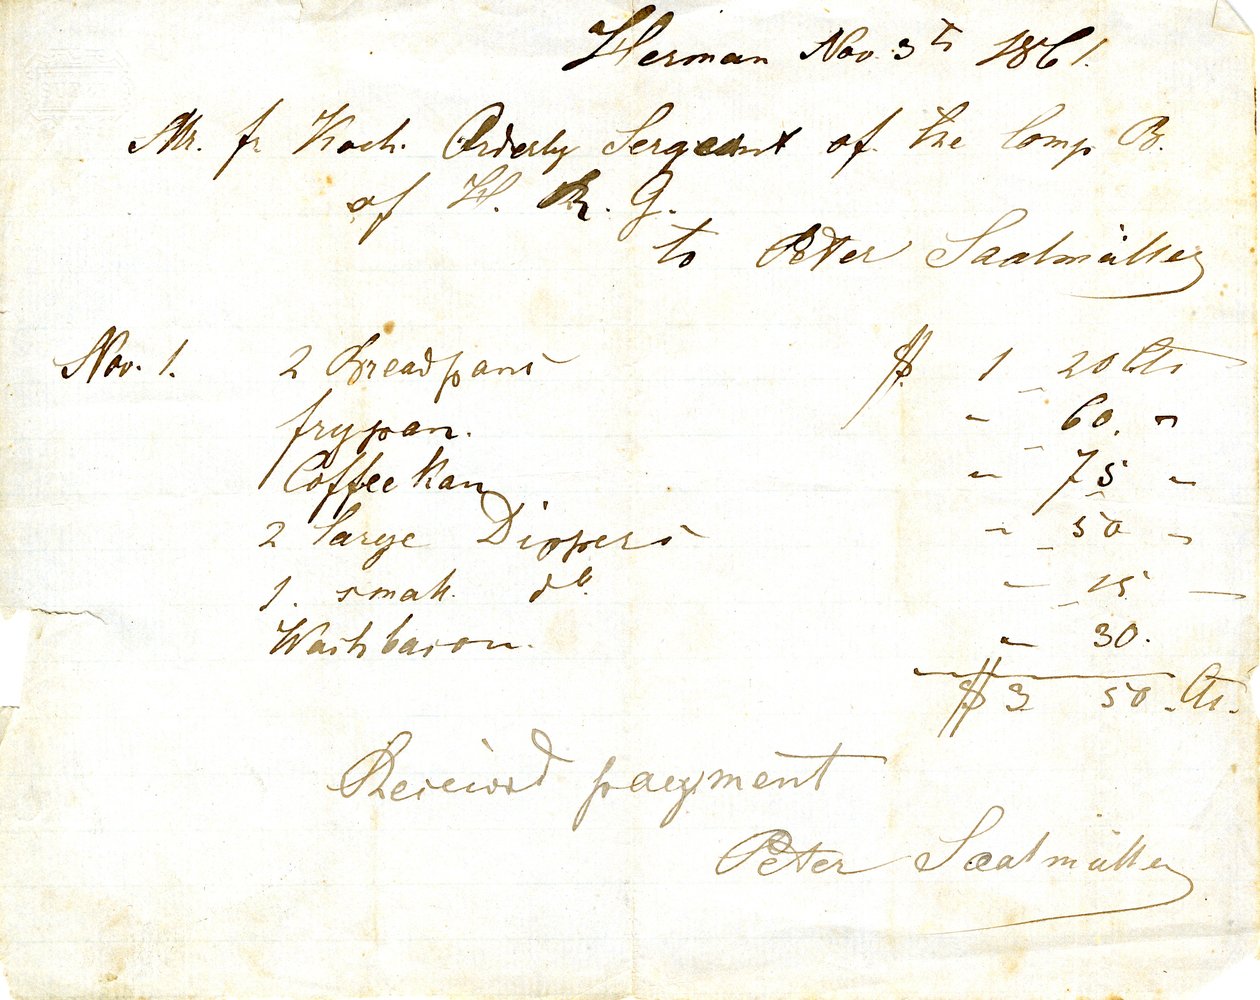 Herman Nov. 3th 1861.
Mr. fr. Koch. Orderly Sergeant of the Comp B.
of H. R. G.
to Peter Saalmüller
Nov. 1. 2 Breadpans $ 1 20 Cts
frypan. " 60. "
Coffee Kan " 75 "
2 large Dippers " 50 "
1. small. do. " 15 "
Washbason. " 30.
$ 3 50. Cts.
Receivd payment
Peter Saalmüller